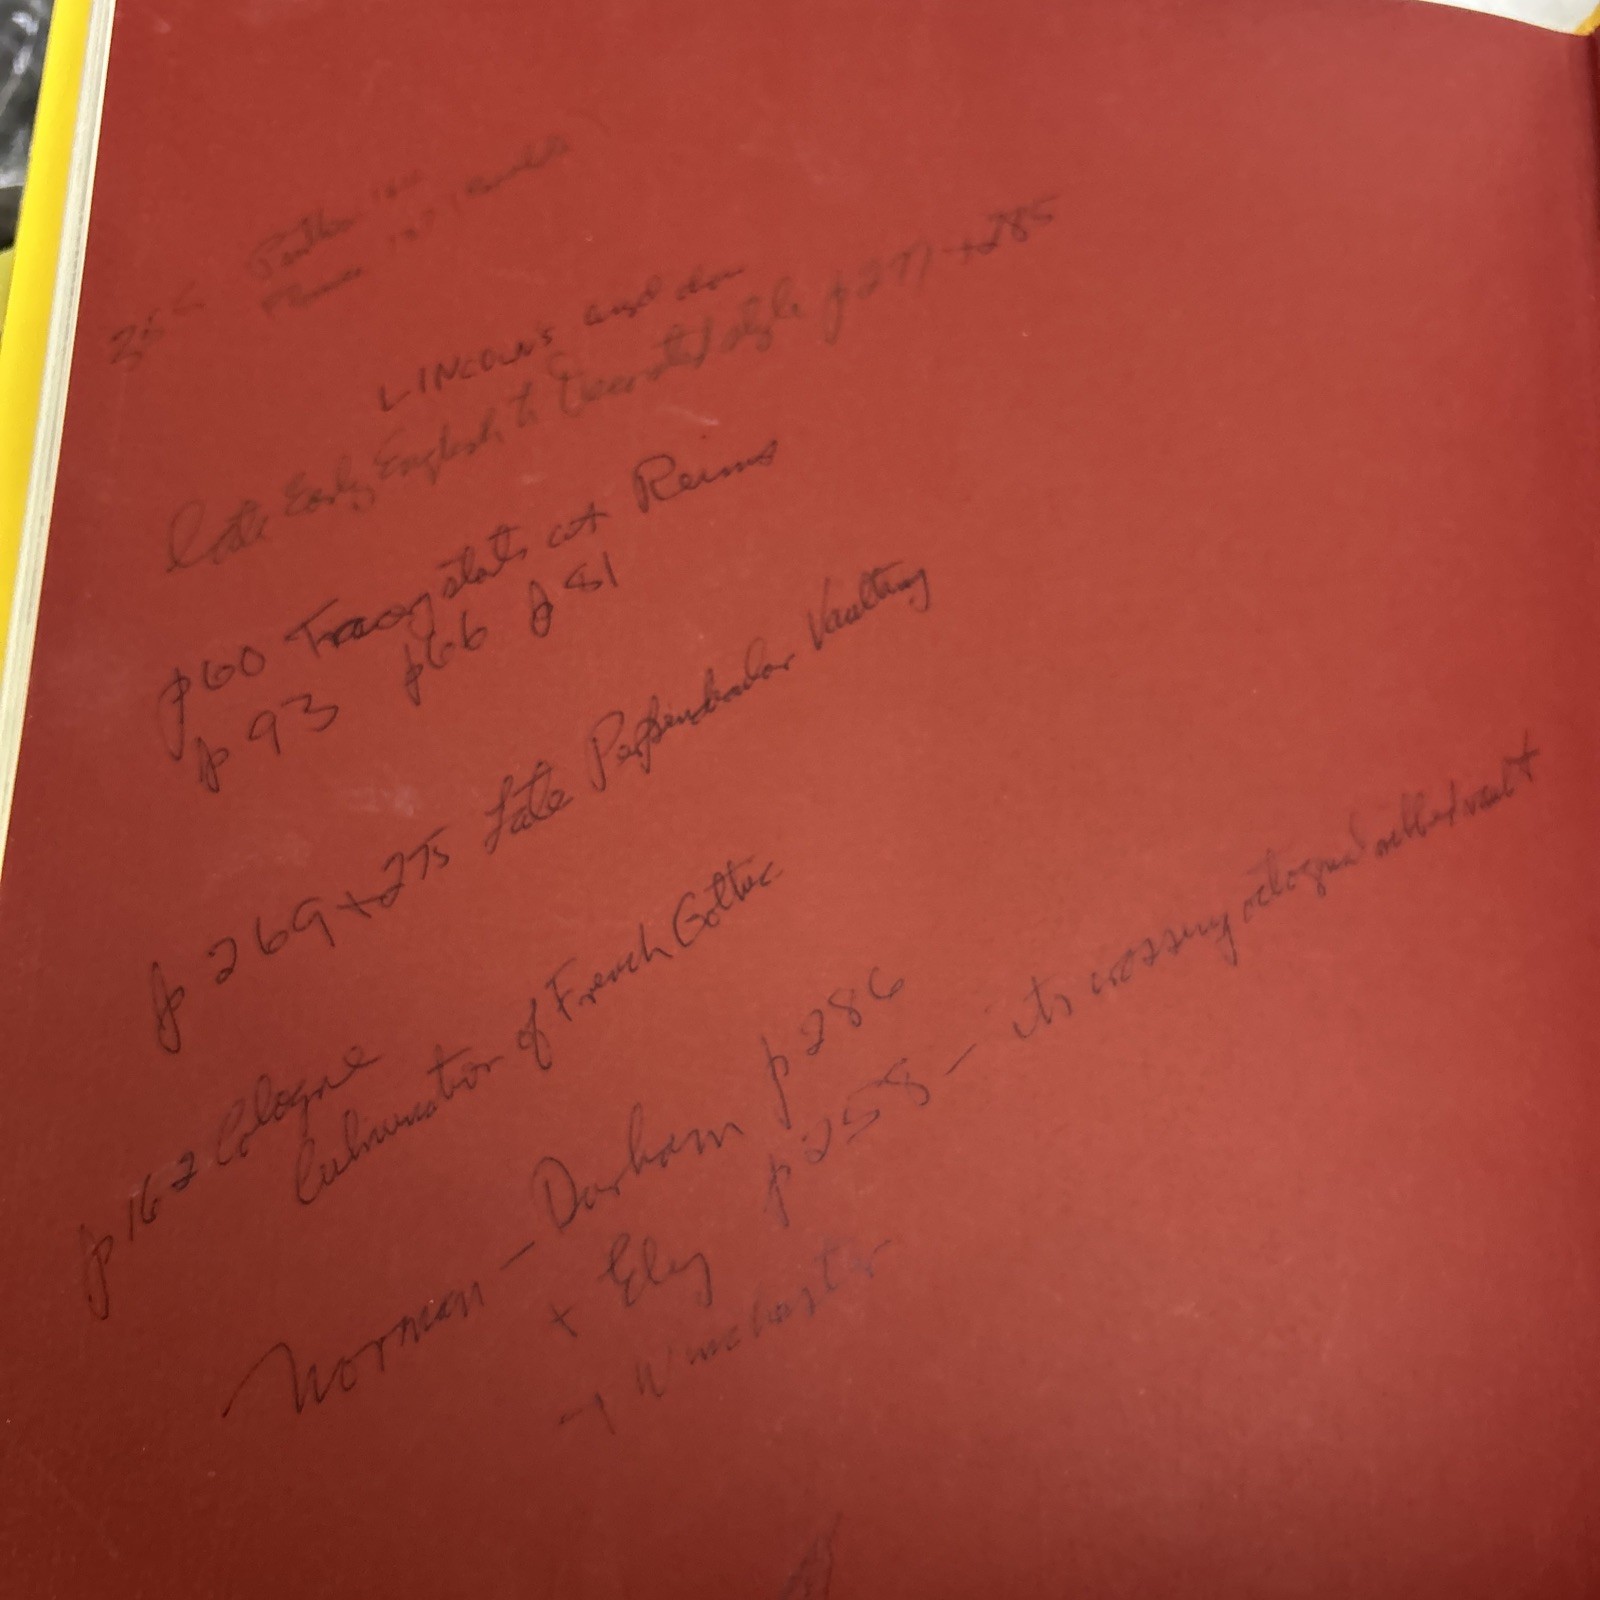 LINCOLN'S
Late Early English to Decorated style p 277 + 285
p 60 Tracery starts at Reims
p 93 p 66 p 81
p 269 + 275 Late Perpendicular Vaulting
p 162 Cologne
Culmination of French Gothic
Norman - Durham p 286
+ Ely p 258 - its crossing octogonal ribbed vault
Winchester